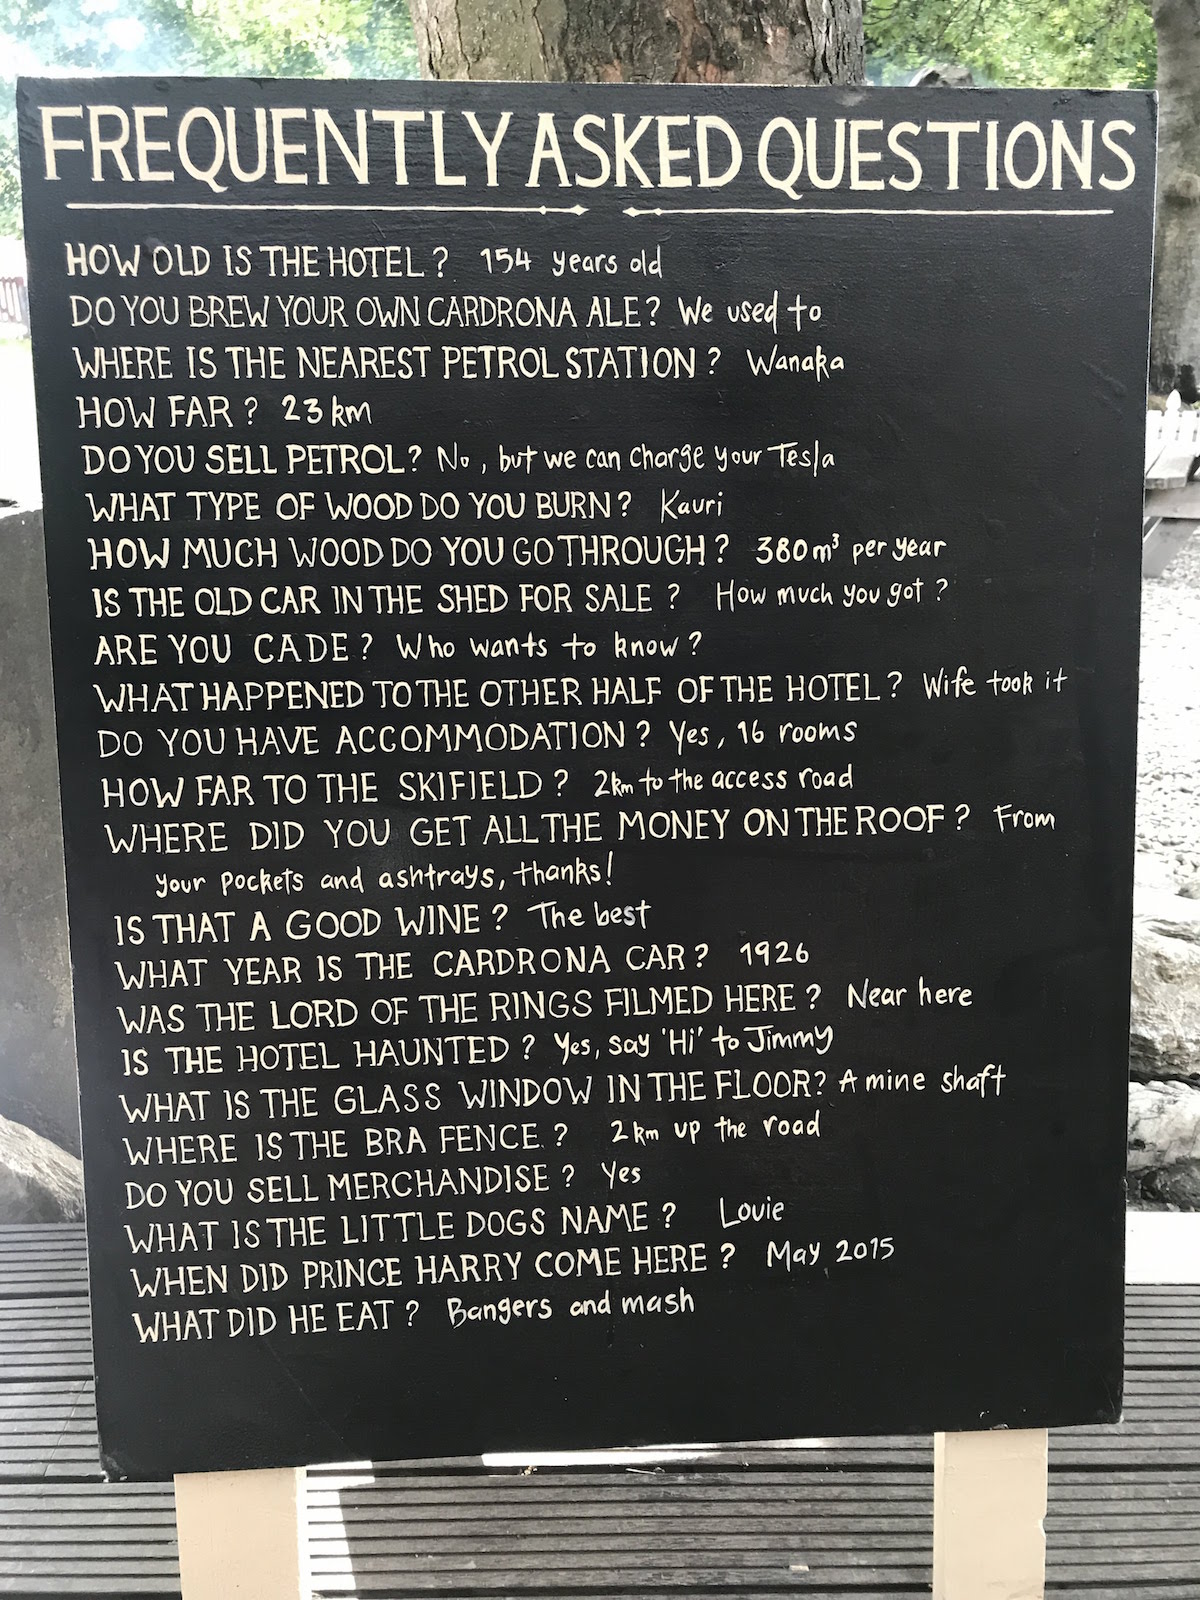 FREQUENTLY ASKED QUESTIONS
HOW OLD IS THE HOTEL? 154 years old
DO YOU BREW YOUR OWN CARDRONA ALE? We used to
WHERE IS THE NEAREST PETROL STATION? Wanaka
HOW FAR? 23 km
DO YOU SELL PETROL? No, but we can charge your Tesla
WHAT TYPE OF WOOD DO YOU BURN? Kauri
HOW MUCH WOOD DO YOU GO THROUGH? 380m³ per year
IS THE OLD CAR IN THE SHED FOR SALE? How much you got?
ARE YOU CADE? Who wants to know?
WHAT HAPPENED TO THE OTHER HALF OF THE HOTEL? Wife took it
DO YOU HAVE ACCOMMODATION? Yes, 16 rooms
HOW FAR TO THE SKIFIELD? 2km to the access road
WHERE DID YOU GET ALL THE MONEY ON THE ROOF? From
your pockets and ashtrays, thanks!
IS THAT A GOOD WINE? The best
WHAT YEAR IS THE CARDRONA CAR? 1926
WAS THE LORD OF THE RINGS FILMED HERE? Near here
IS THE HOTEL HAUNTED? Yes, say 'Hi' to Jimmy
WHAT IS THE GLASS WINDOW IN THE FLOOR? A mine shaft
WHERE IS THE BRA FENCE? 2km up the road
DO YOU SELL MERCHANDISE? Yes
WHAT IS THE LITTLE DOGS NAME? Louie
WHEN DID PRINCE HARRY COME HERE? May 2015
WHAT DID HE EAT? Bangers and mash